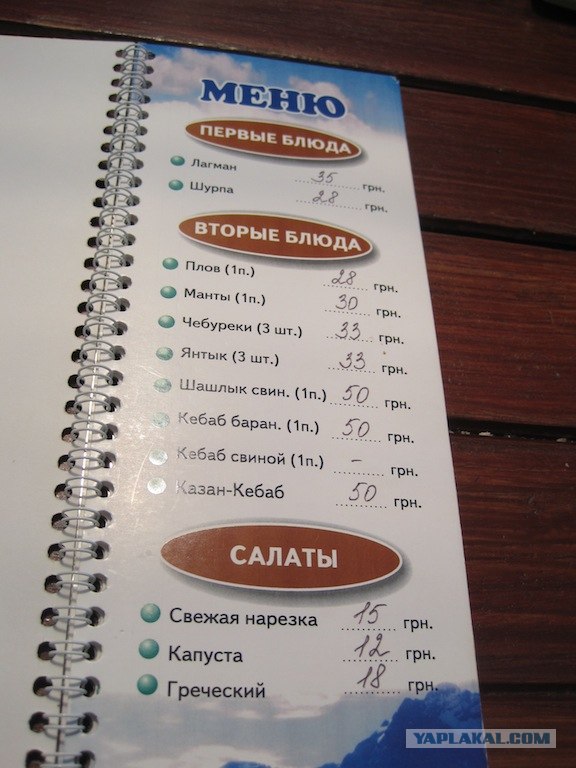 МЕНЮ
ПЕРВЫЕ БЛЮДА
Лагман 35 грн.
Шурпа 28 грн.
ВТОРЫЕ БЛЮДА
Плов (1п.) 28 грн.
Манты (1п.) 30 грн.
Чебуреки (3 шт.) 33 грн.
Янтык (3 шт.) 33 грн.
Шашлык свин. (1п.) 50 грн.
Кебаб баран. (1п.) 50 грн.
Кебаб свиной (1п.) - грн.
Казан-Кебаб 50 грн.
САЛАТЫ
Свежая нарезка 15 грн.
Капуста 12 грн.
Греческий 18 грн.
YAPLAKAL.COM